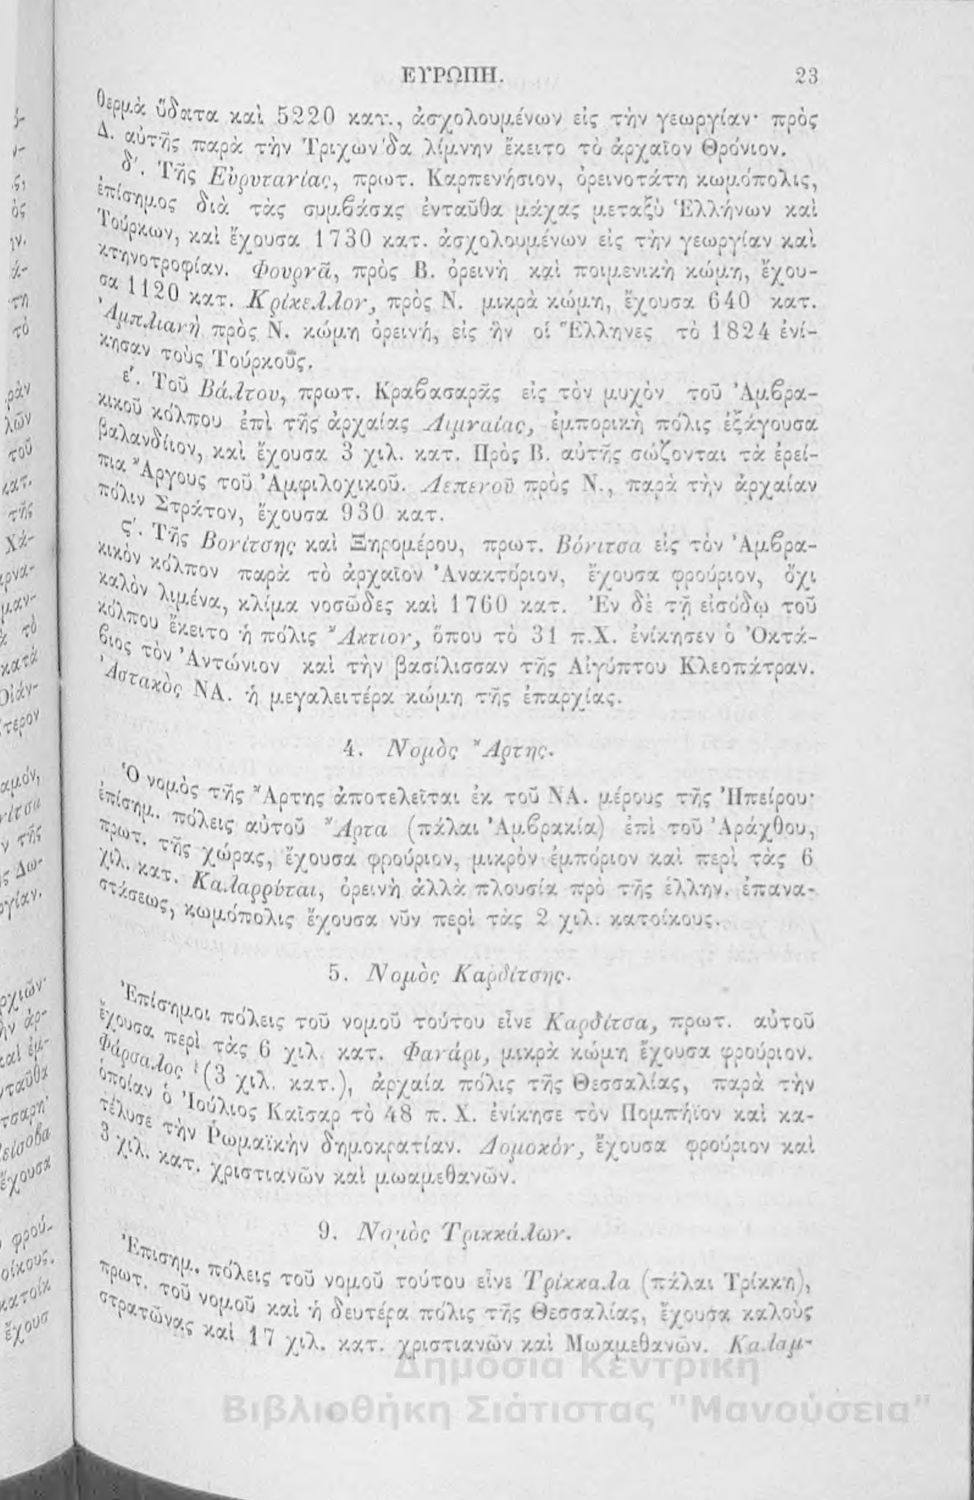 ΕΥΡΩΠΗ. 23
θερμὰ ὕδατα καὶ 5220 κατ., ἀσχολουμένων εἰς τὴν γεωργίαν· πρὸς
Δ. αὐτῆς παρὰ τὴν Τριχωνίδα λίμνην ἔκειτο τὸ ἀρχαῖον Θρόνιον.
δ΄. Τῆς Εὐρυτανίας, πρωτ. Καρπενήσιον, ὀρεινοτάτη κωμόπολις,
ἐπίσημος διὰ τὰς συμβάσας ἐνταῦθα μάχας μεταξὺ Ἑλλήνων καὶ
Τούρκων, καὶ ἔχουσα 1730 κατ. ἀσχολουμένων εἰς τὴν γεωργίαν καὶ
κτηνοτροφίαν. Φουρνᾶ, πρὸς Β. ὀρεινὴ καὶ ποιμενικὴ κώμη, ἔχου-
σα 1120 κατ. Κρίκελλον, πρὸς Ν. μικρὰ κώμη, ἔχουσα 640 κατ.
Ἀμπλιανὴ πρὸς Ν. κώμη ὀρεινή, εἰς ἣν οἱ Ἕλληνες τὸ 1824 ἐνί-
κησαν τοὺς Τούρκους.
ε΄. Τοῦ Βάλτου, πρωτ. Κραβασαρᾶς εἰς τὸν μυχὸν τοῦ Ἀμβρα-
κικοῦ κόλπου ἐπὶ τῆς ἀρχαίας Λιμναίας, ἐμπορικὴ πόλις ἐξάγουσα
βαλανδίιον, καὶ ἔχουσα 3 χιλ. κατ. Πρὸς Β. αὐτῆς σώζονται τὰ ἐρεί-
πια Ἄργους τοῦ Ἀμφιλοχικοῦ. Λεπενοῦ πρὸς Ν., παρὰ τὴν ἀρχαίαν
πόλιν Στράτον, ἔχουσα 930 κατ.
ς΄. Τῆς Βονίτσης καὶ Ξηρομέρου, πρωτ. Βόνιτσα εἰς τὸν Ἀμβρα-
κικὸν κόλπον παρὰ τὸ ἀρχαῖον Ἀνακτόριον, ἔχουσα φρούριον, ὄχι
καλὸν λιμένα, κλίμα νοσῶδες καὶ 1760 κατ. Ἐν δὲ τῇ εἰσόδῳ τοῦ
κόλπου ἔκειτο ἡ πόλις Ἄκτιον, ὅπου τὸ 31 π.Χ. ἐνίκησεν ὁ Ὀκτά-
βιος τὸν Ἀντώνιον καὶ τὴν βασίλισσαν τῆς Αἰγύπτου Κλεοπάτραν.
Ἀστακὸς ΝΑ. ἡ μεγαλειτέρα κώμη τῆς ἐπαρχίας.
4. Νομὸς Ἄρτης.
Ὁ νομὸς τῆς Ἄρτης ἀποτελεῖται ἐκ τοῦ ΝΑ. μέρους τῆς Ἠπείρου·
ἐπίσημ. πόλεις αὐτοῦ Ἄρτα (πάλαι Ἀμβρακία) ἐπὶ τοῦ Ἀράχθου,
πρωτ. τῆς χώρας, ἔχουσα φρούριον, μικρὸν ἐμπόριον καὶ περὶ τὰς 6
χιλ. κατ. Καλαρρύται, ὀρεινὴ ἀλλὰ πλουσία πρὸ τῆς ἑλλην. ἐπανα-
στάσεως, κωμόπολις ἔχουσα νῦν περὶ τὰς 2 χιλ. κατοίκους.
5. Νομὸς Καρδίτσης.
Ἐπίσημοι πόλεις τοῦ νομοῦ τούτου εἶνε Καρδίτσα, πρωτ. αὐτοῦ
ἔχουσα περὶ τὰς 6 χιλ. κατ. Φανάρι, μικρὰ κώμη ἔχουσα φρούριον.
Φάρσαλος (3 χιλ. κατ.), ἀρχαία πόλις τῆς Θεσσαλίας, παρὰ τὴν
ὁποίαν ὁ Ἰούλιος Καῖσαρ τὸ 48 π. Χ. ἐνίκησε τὸν Πομπήϊον καὶ κα-
τέλυσε τὴν Ῥωμαϊκὴν δημοκρατίαν. Δομοκόν, ἔχουσα φρούριον καὶ
3 χιλ. κατ. χριστιανῶν καὶ μωαμεθανῶν.
9. Νομὸς Τρικκάλων.
Ἐπισημ. πόλεις τοῦ νομοῦ τούτου εἶνε Τρίκκαλα (πάλαι Τρίκκη),
πρωτ. τοῦ νομοῦ καὶ ἡ δευτέρα πόλις τῆς Θεσσαλίας, ἔχουσα καλοὺς
στρατῶνας καὶ 17 χιλ. κατ. χριστιανῶν καὶ Μωαμεθανῶν. Καλαμ-
Δημόσια Κεντρική
Βιβλιοθήκη Σιάτιστας "Μανούσεια"